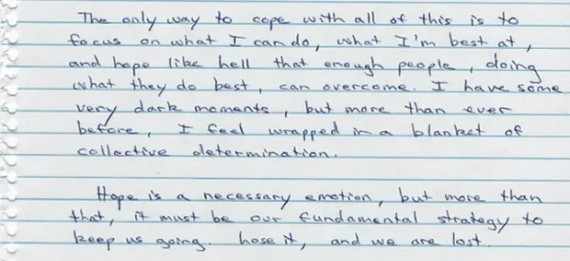 The only way to cope with all of this is to
focus on what I can do, what I'm best at,
and hope like hell that enough people, doing
what they do best, can overcome. I have some
very dark moments, but more than ever
before, I feel wrapped in a blanket of
collective determination.
Hope is a necessary emotion, but more than
that, it must be our fundamental strategy to
keep us going. Lose it, and we are lost.